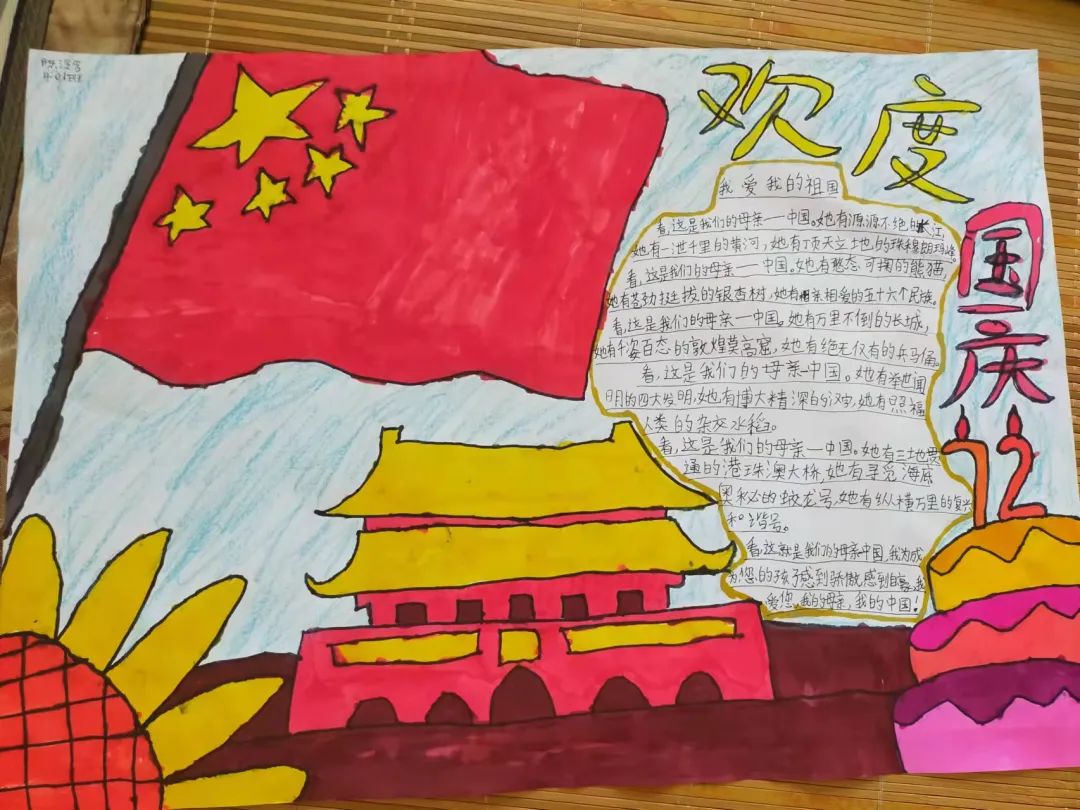 欢度
国庆
72
我爱我的祖国
看,这是我们的母亲——中国。她有源源不绝的长江,
她有一泄千里的黄河,她有顶天立地的珠穆朗玛峰。
看,这是我们的母亲——中国。她有憨态可掬的熊猫,
她有苍劲挺拔的银杏树,她有相亲相爱的五十六个民族。
看,这是我们的母亲——中国。她有万里不倒的长城,
她有千姿百态的敦煌莫高窟,她有绝无仅有的兵马俑。
看,这是我们的母亲—中国。她有举世闻
明的四大发明,她有博大精深的汉字,她有照福
人类的杂交水稻。
看,这是我们的母亲—中国。她有三地贯
通的港珠澳大桥,她有寻觅海底
奥秘的蛟龙号,她有纵横万里的复兴
和谐号。
看,这就是我们的母亲中国,我为成
为您的孩子感到骄傲感到自豪,我
爱您,我的母亲,我的中国!